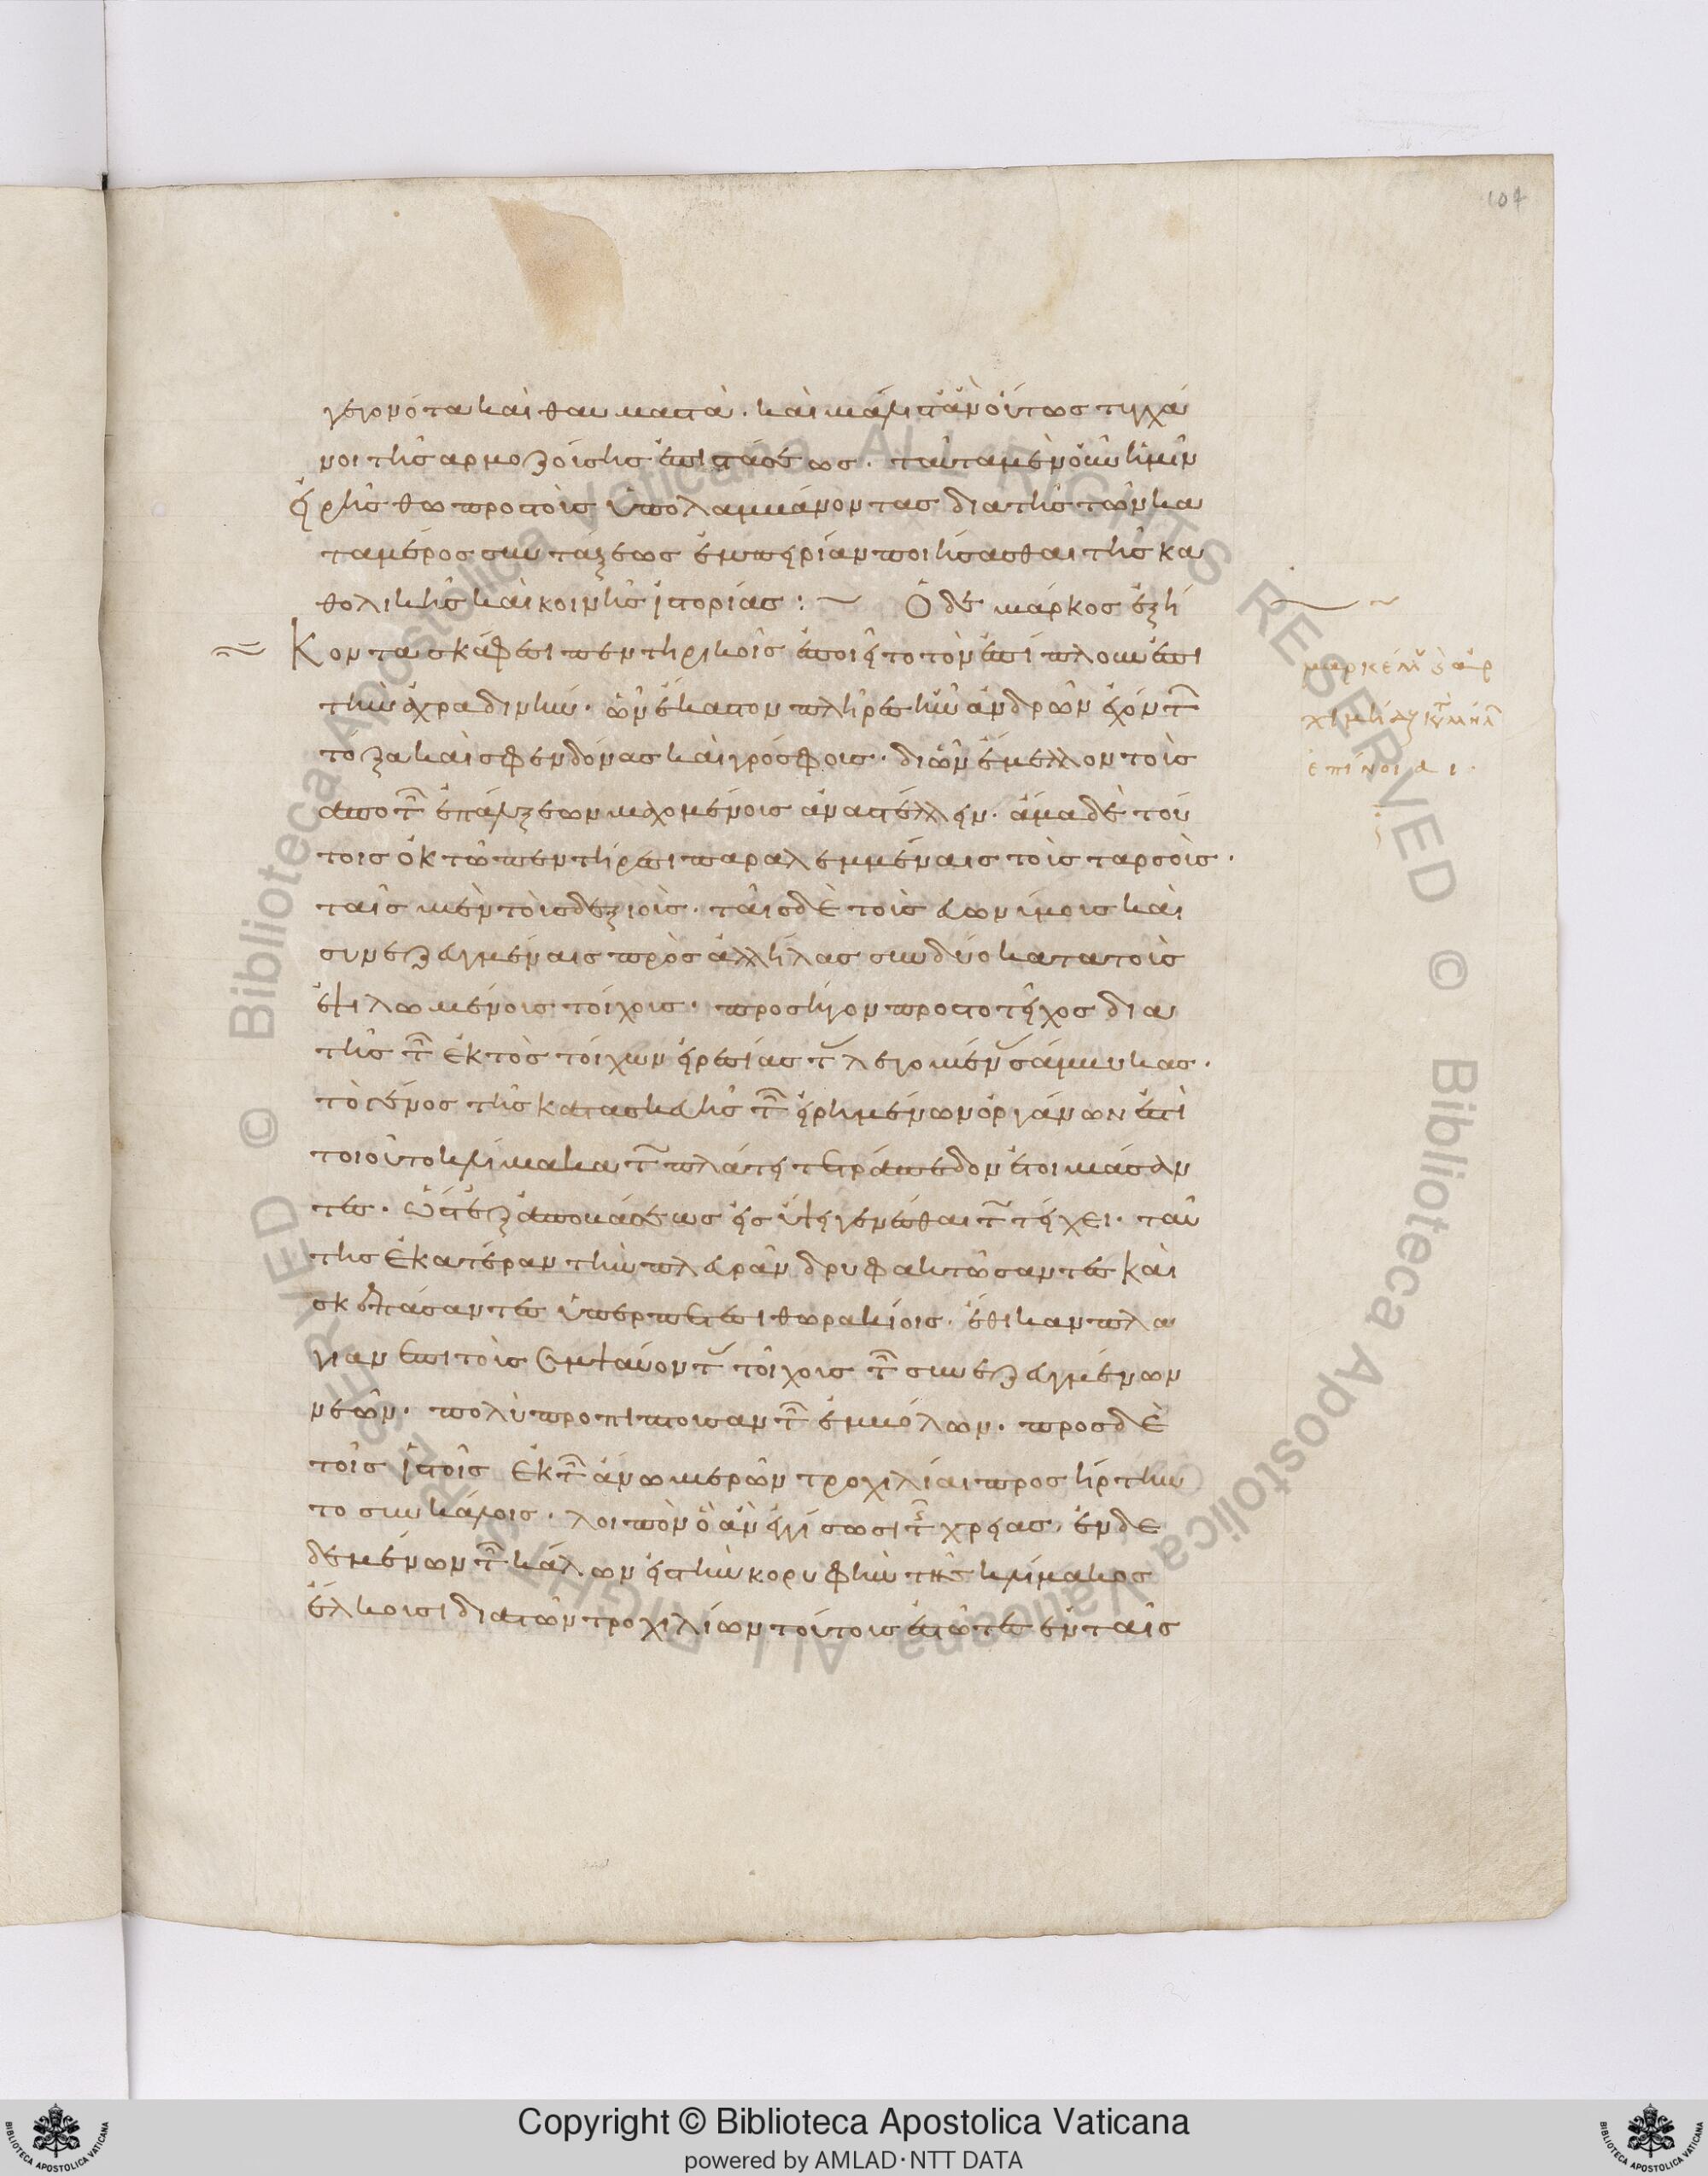 104
γεγονότα καὶ θαυμαστὰ. καὶ μάλιστ' ἂν ὄντως τυγχά
νοι τῆς ἁρμοζούσης ἐπιστάσεως. ταῦτα μὲν οὖν ἡμῖν
εἰρήσθω πρὸς τοὺς ὑπολαμβάνοντας διὰ τῆς τῶν κα
τα μέρος συντάξεως ἐμπειρίαν ποιήσασθαι τῆς κα
θολικῆς καὶ κοινῆς ἱστορίας : ~ Ὁ δὲ μάρκος ἑξή
κοντα σκάφεσι πεντηρικοῖς ἐποιεῖτο τὸν ἐπίπλουν ἐπὶ
τὴν ἀχραδινήν. ὧν ἕκαστον πλῆρες ἦν ἀνδρῶν ἐχόντων
τόξα καὶ σφενδόνας καὶ γρόσφους. δι' ὧν ἔμελλον τοὺς
ἀπὸ τῶν ἐπάλξεων μαχομένους ἀναστέλλειν. ἅμα δὲ τού
τοις ὀκτὼ πεντήρεσι παραλελυμμέναις τοὺς ταρσοὺς.
ταῖς μὲν τοὺς δεξιοὺς. ταῖς δὲ τοὺς εὐωνύμους καὶ
συνεζευγμέναις πρὸς ἀλλήλας σὺν δύο κατὰ τοὺς
ἐψιλωμένους τοίχους. προσῆγον πρὸς τὸ τεῖχος διὰ
τῆς τῶν ἐκτὸς τοίχων εἰρεσίας τὰς λεγομένας σαμβύκας.
τὸ γένος τῆς κατασκευῆς τῶν εἰρημένων ὀργάνων ἐστὶ
τοιοῦτο κλίμακα τῷ πλάτει τετράπεδον ἑτοιμάσαν
τες. ὥστ' ἐξ ἀποβάσεως ἰσοϋψῆ γενέσθαι τῷ τείχει. ταύ
της ἑκατέραν τὴν πλευρὰν δρυφακτώσαντες καὶ
σκεπάσαντες ὑπερπετέσι θωρακίοις. ἔθηκαν πλα
γίαν ἐπὶ τοὺς συμψαύοντας τοίχους τῶν συνεζευγμένων
νεῶν. πολὺ προπίπτουσαν τῶν ἐμβόλων. πρὸς δὲ
τοῖς ἱστοῖς ἐκ τῶν ἄνω μερῶν τροχιλίαι προσήρτην
το σὺν κάλοις. λοιπὸν ὅταν ἐγγίσωσι τῆς χρείας. ἐνδε
δεμένων τῶν κάλων εἰς τὴν κορυφὴν τῆς κλίμακος
ἕλκουσι διὰ τῶν τροχιλίων τούτους ἑστῶτες ἐν ταῖς
μαρκέλλου καὶ ἀρ
ἐπίνοιαι.
Copyright © Biblioteca Apostolica Vaticana
powered by AMLAD·NTT DATA
© Biblioteca Apostolica Vaticana ALL RIGHTS RESERVED